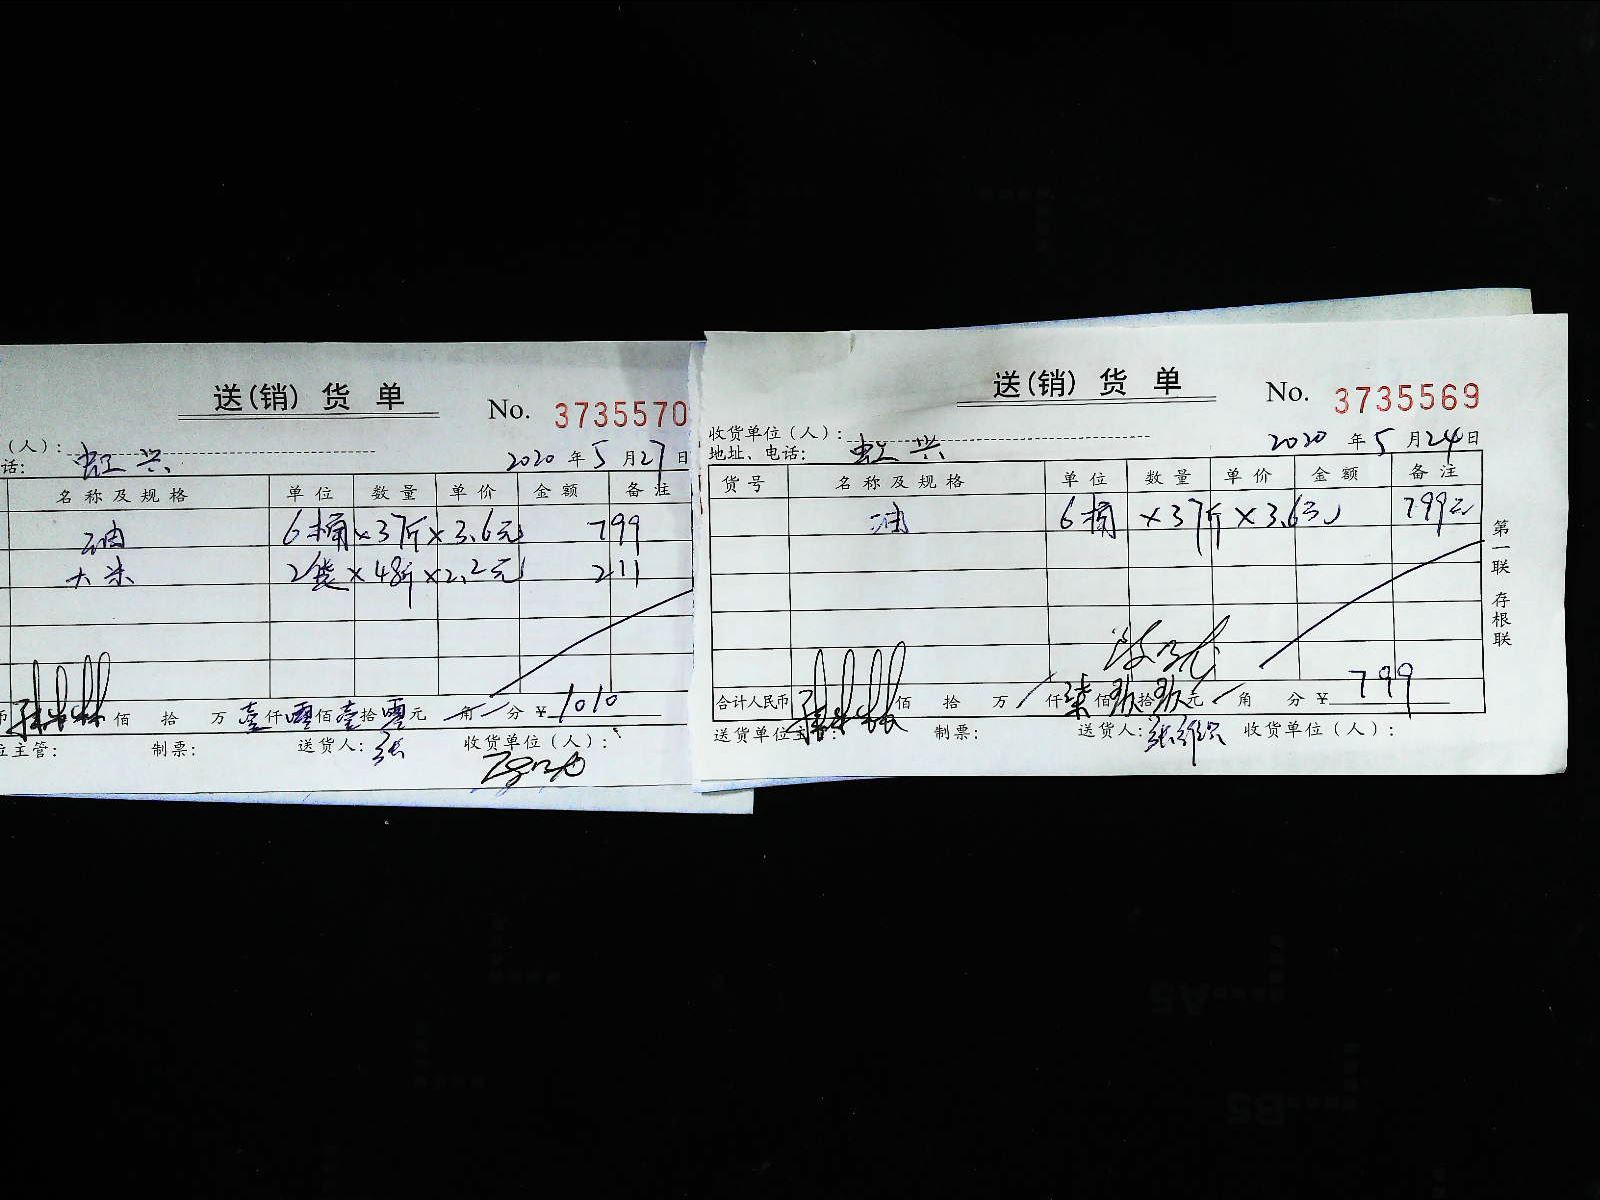 送(销)货单
No. 3735570
(人):
话: 虹兴
2020年5月27日
名称及规格 单位 数量 单价 金额 备注
油 6桶×37斤×3.6元 799
大米 2袋×48斤×2.2元 211
币 佰 拾 万 壹仟零佰壹拾零元 角 分 ¥ 1010
位主管: 制票: 送货人: 张 收货单位(人):
送(销)货单
No. 3735569
收货单位(人):
地址、电话: 虹兴
2020年5月24日
货号 名称及规格 单位 数量 单价 金额 备注
油 6桶 ×37斤 ×3.6元 799元
合计人民币 佰 拾 万 仟柒佰玖拾玖元 角 分 ¥ 799
送货单位主管: 制票: 送货人: 收货单位(人):
第一联 存根联